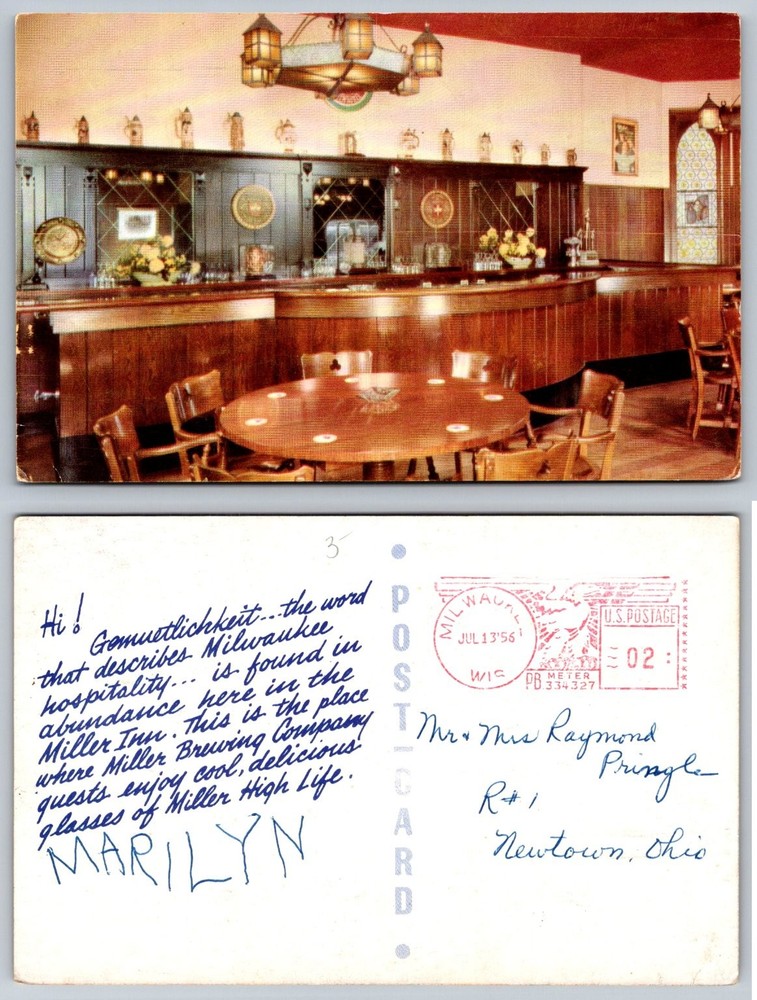 3-
Hi!
Gemuetlichkeit...the word
that describes Milwaukee
hospitality... is found in
abundance here in the
Miller Inn. This is the place
where Miller Brewing Company
guests enjoy cool, delicious
glasses of Miller High Life.
MARILYN
POST CARD
MILWAUKEE
JUL 13'56
WIS
U.S. POSTAGE
02
PB METER
334327
Mr & Mrs Raymond
Pringle
R#1
Newtown, Ohio